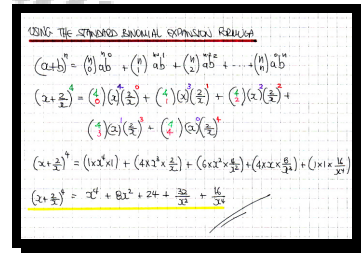 USING THE STANDARD BINOMIAL EXPANSION FORMULA
(a+b)^n = (n 0) a^n b^0 + (n 1) a^(n-1) b^1 + (n 2) a^(n-2) b^2 + ... + (n n) a^0 b^n
(x+2/x)^4 = (4 0)(x)^4(2/x)^0 + (4 1)(x)^3(2/x)^1 + (4 2)(x)^2(2/x)^2 +
(4 3)(x)^1(2/x)^3 + (4 4)(x)^0(2/x)^4
(x+2/x)^4 = (1×x^4×1) + (4×x^3×2/x) + (6×x^2×4/x^2) + (4×x×8/x^3) + (1×1×16/x^4)
(x+2/x)^4 = x^4 + 8x^2 + 24 + 32/x^2 + 16/x^4